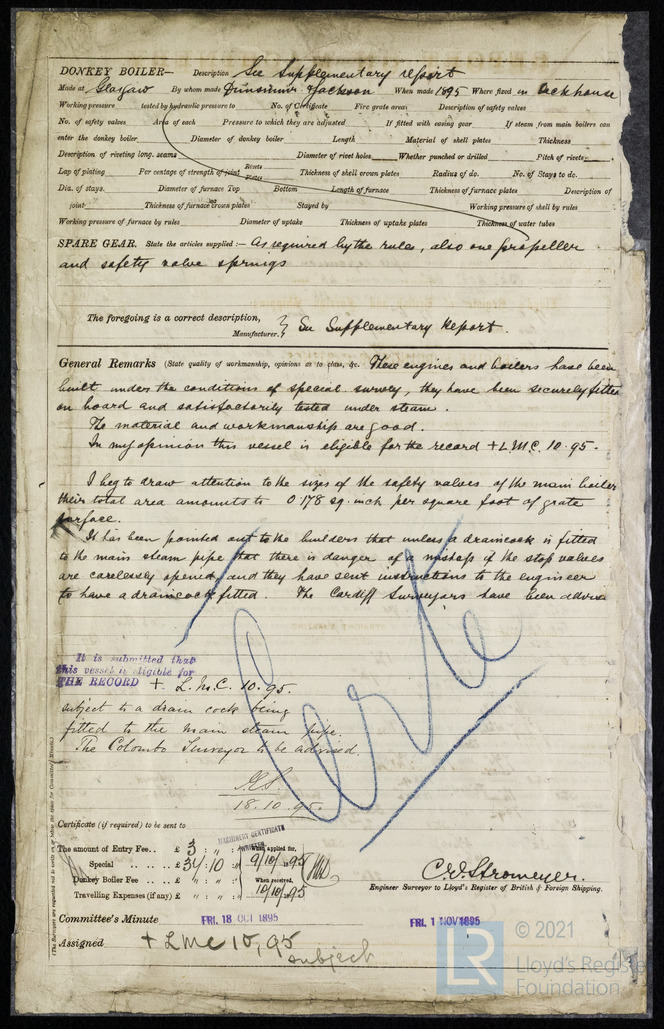 DONKEY BOILER— Description See Supplementary report
Made at Glasgow By whom made Dunsmuir & Jackson When made 1895 Where fixed in deckhouse
Working pressure tested by hydraulic pressure to No. of Certificate Fire grate area Description of safety valves
No. of safety valves Area of each Pressure to which they are adjusted If fitted with easing gear If steam from main boilers can
enter the donkey boiler Diameter of donkey boiler Length Material of shell plates Thickness
Description of riveting long. seams Diameter of rivet holes Whether punched or drilled Pitch of rivets
Lap of plating Per centage of strength of joint Rivets Plates Thickness of shell crown plates Radius of do. No. of Stays to do.
Dia. of stays. Diameter of furnace Top Bottom Length of furnace Thickness of furnace plates Description of
joint Thickness of furnace crown plates Stayed by Working pressure of shell by rules
Working pressure of furnace by rules Diameter of uptake Thickness of uptake plates Thickness of water tubes
SPARE GEAR. State the articles supplied:— As required by the rules, also one propeller
and safety valve springs
The foregoing is a correct description,
Manufacturer. See Supplementary Report.
General Remarks (State quality of workmanship, opinions as to class, &c. These engines and boilers have been
built under the conditions of special survey, they have been securely fitted
on board and satisfactorily tested under steam.
The material and workmanship are good.
In my opinion this vessel is eligible for the record + L.M.C. 10.95.
I beg to draw attention to the sizes of the safety valves of the main boiler
their total area amounts to 0.178 sq. inch per square foot of grate
surface.
It has been pointed out to the builders that unless a draincock is fitted
to the main steam pipe that there is danger of a mishap if the stop valves
are carelessly opened, and they have sent instructions to the engineer
to have a draincock fitted. The Cardiff Surveyors have been advise
It is submitted that
this vessel is eligible for
THE RECORD + L.M.C. 10.95.
subject to a drain cock being
fitted to the main steam pipe.
The Colombo Surveyor to be advised.
18.10.95.
Certificate (if required) to be sent to
MACHINERY CERTIFICATE
WRITTEN
The amount of Entry Fee.. £ 3 : " : " When applied for,
Special £ 34 : 10 : " 9/10/1895
Donkey Boiler Fee £ " : " : " When received,
Travelling Expenses (if any) £ " : " : " 10/10/95
C.E. Stromeyer.
Engineer Surveyor to Lloyd's Register of British & Foreign Shipping.
Committee's Minute FRI. 18 OCT 1895 FRI. 1 NOV 1895
Assigned + LMC 10,95
subject
LR © 2021
Lloyd's Register
Foundation